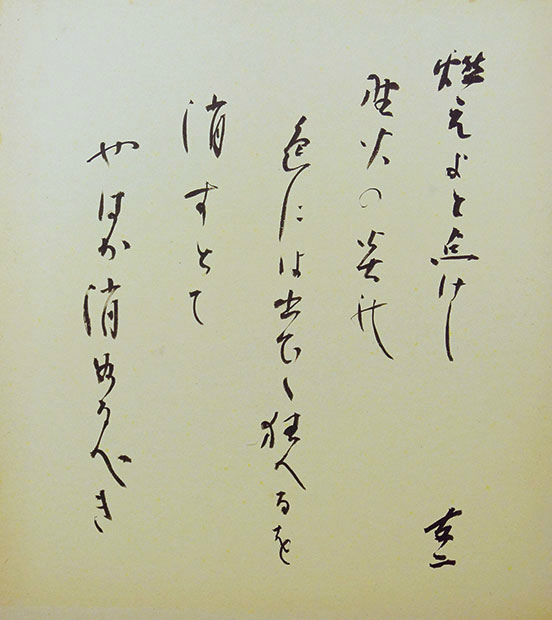 燃えよと点けし
野火の炎の
色には出でゝ狂へるを
消すとて
やはか消ぬるべき